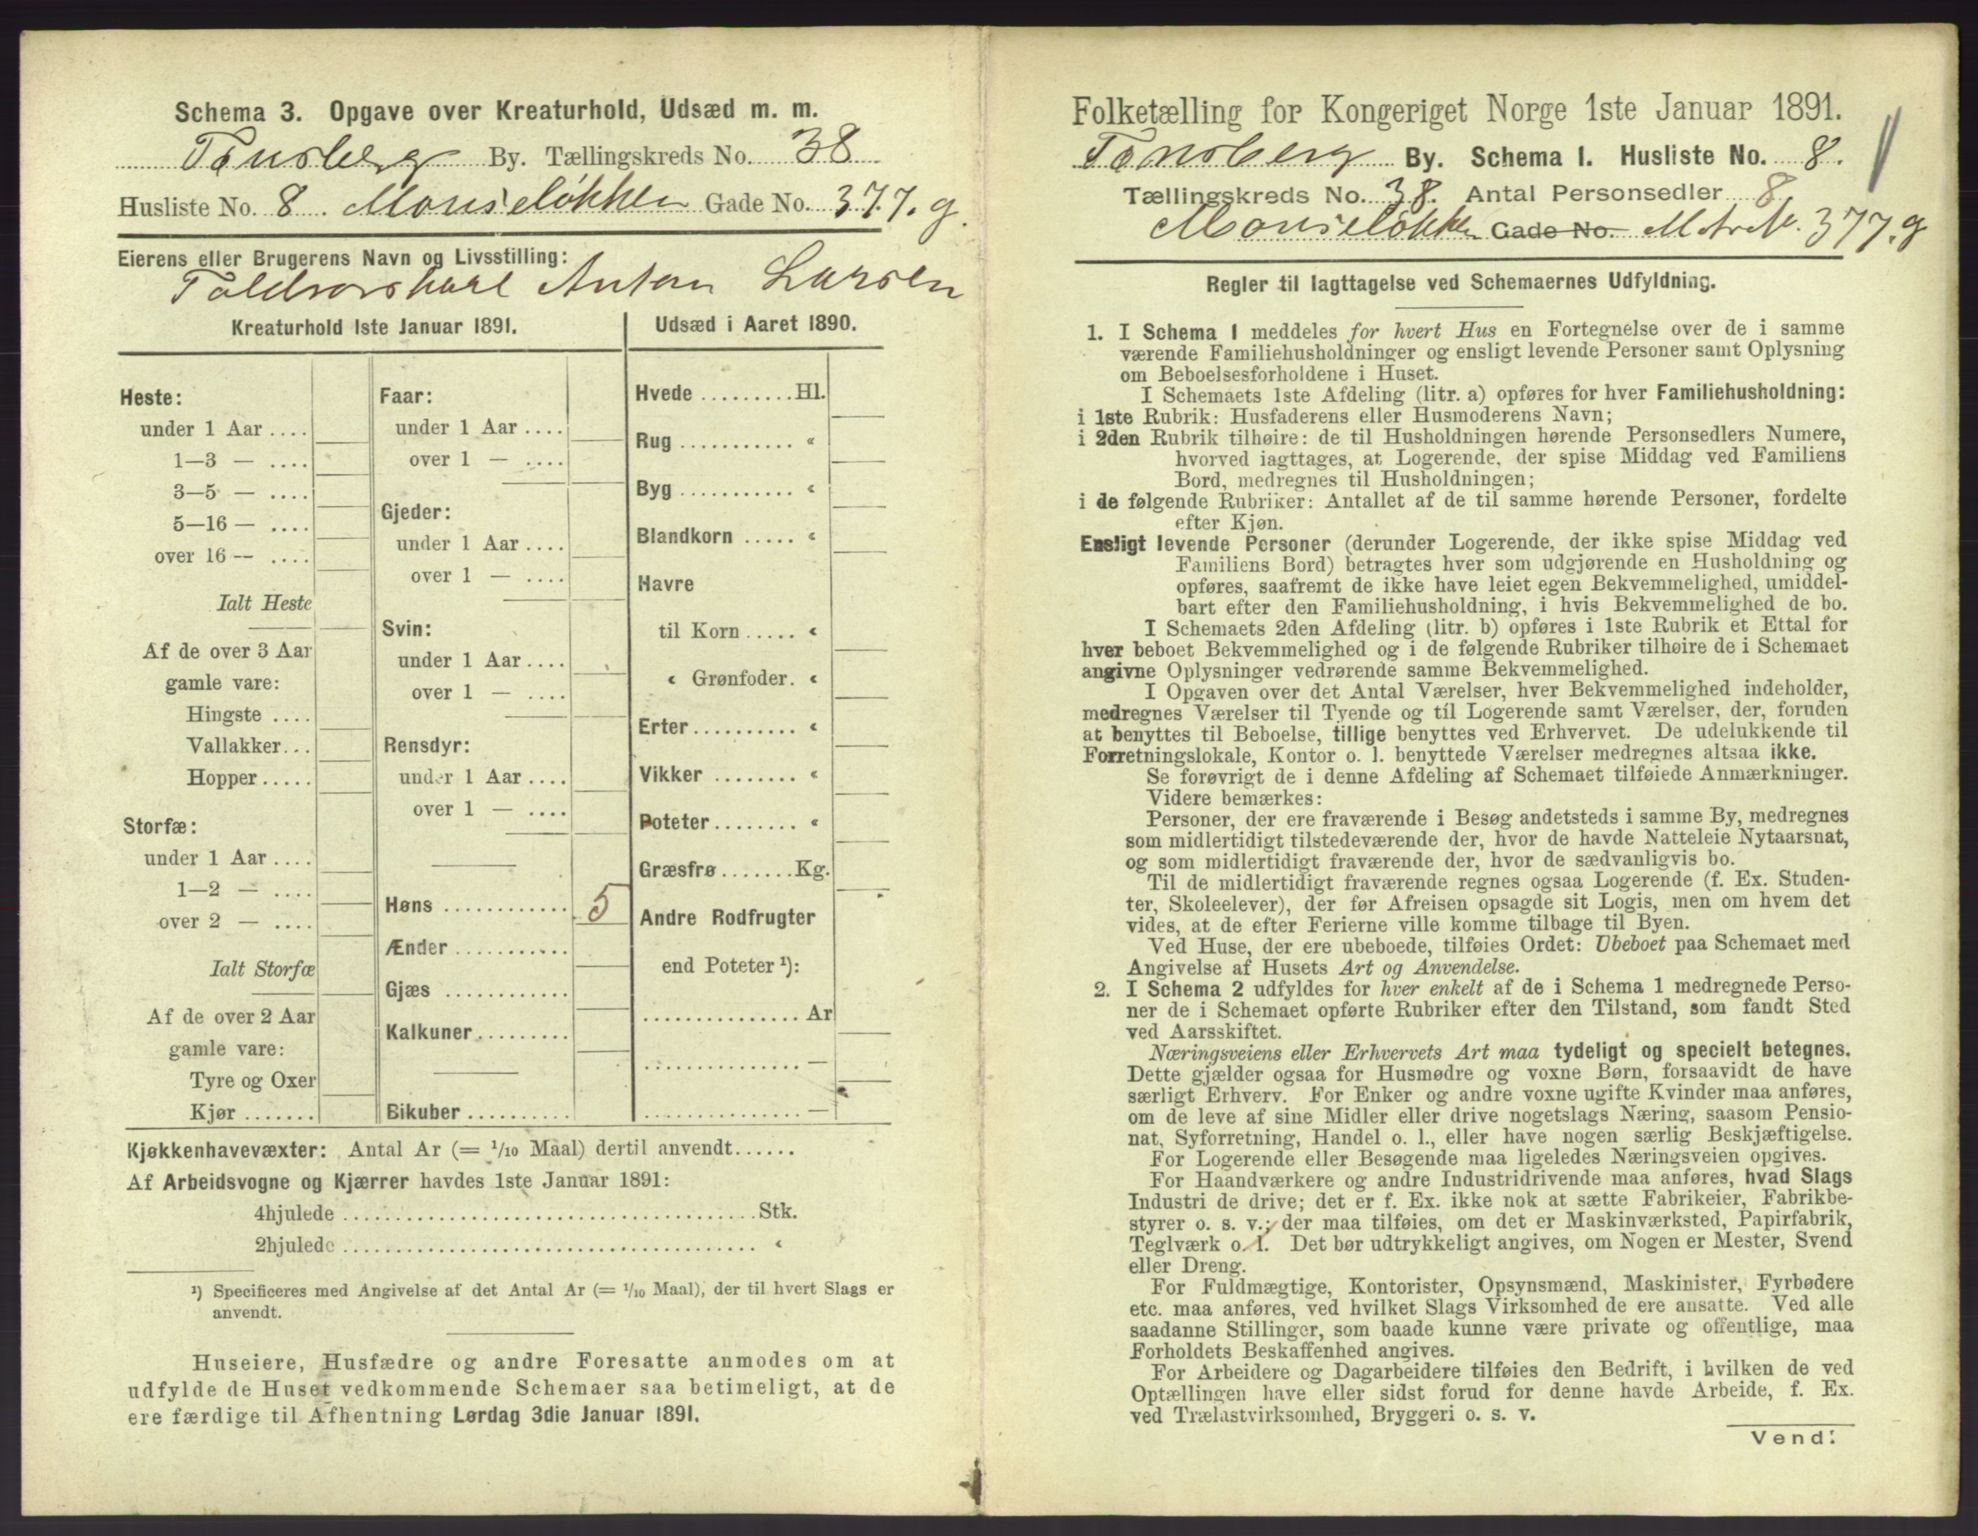 Schema 3. Opgave over Kreaturhold, Udsæd m. m.
Tønsberg By. Tællingskreds No. 38
Husliste No. 8. Mouseløkken Gade No. 377. g.
Eierens eller Brugerens Navn og Livsstilling:
Toldrorskarl Anton Larsen
Kreaturhold 1ste Januar 1891.
Heste:
under 1 Aar ....
1—3 — ....
3—5 — ....
5—16 — ....
over 16 — ....
Ialt Heste
Af de over 3 Aar
gamle vare:
Hingste ....
Vallakker...
Hopper.....
Storfæ:
under 1 Aar ....
1—2 — ....
over 2 — ....
Ialt Storfæ
Af de over 2 Aar
gamle vare:
Tyre og Oxer
Kjør .......
Faar:
under 1 Aar ....
over 1 — ....
Gjeder:
under 1 Aar ....
over 1 — ....
Svin:
under 1 Aar ....
over 1 — ....
Rensdyr:
under 1 Aar ....
over 1 — ....
Høns ............ 5
Ænder ...........
Gjæs ............
Kalkuner.........
Bikuber ..........
Udsæd i Aaret 1890.
Hvede .........Hl.
Rug ........... «
Byg ........... «
Blandkorn ..... «
Havre
til Korn ..... «
« Grønfoder. «
Erter .......... «
Vikker ......... «
Poteter ........ «
Græsfrø .......Kg.
Andre Rodfrugter
end Poteter ¹):
............... Ar
............... —
............... —
Kjøkkenhavevæxter: Antal Ar (= 1/10 Maal) dertil anvendt......
Af Arbeidsvogne og Kjærrer havdes 1ste Januar 1891:
4hjulede ........................................Stk.
2hjulede ........................................ «
¹) Specificeres med Angivelse af det Antal Ar (= 1/10 Maal), der til hvert Slags er
anvendt.
Huseiere, Husfædre og andre Foresatte anmodes om at
udfylde de Huset vedkommende Schemaer saa betimeligt, at de
ere færdige til Afhentning Lørdag 3die Januar 1891.
Folketælling for Kongeriget Norge 1ste Januar 1891.
Tønsberg By. Schema 1. Husliste No. 8.
Tællingskreds No. 38. Antal Personsedler 8.
Mouseløkken Gade No. Matr. N. 377. g
Regler til Iagttagelse ved Schemaernes Udfyldning.
1. I Schema 1 meddeles for hvert Hus en Fortegnelse over de i samme
værende Familiehusholdninger og ensligt levende Personer samt Oplysning
om Beboelsesforholdene i Huset.
I Schemaets 1ste Afdeling (litr. a) opføres for hver Familiehusholdning:
i 1ste Rubrik: Husfaderens eller Husmoderens Navn;
i 2den Rubrik tilhøire: de til Husholdningen hørende Personsedlers Numere,
hvorved iagttages, at Logerende, der spise Middag ved Familiens
Bord, medregnes til Husholdningen;
i de følgende Rubriker: Antallet af de til samme hørende Personer, fordelte
efter Kjøn.
Ensligt levende Personer (derunder Logerende, der ikke spise Middag ved
Familiens Bord) betragtes hver som udgjørende en Husholdning og
opføres, saafremt de ikke have leiet egen Bekvemmelighed, umiddel-
bart efter den Familiehusholdning, i hvis Bekvemmelighed de bo.
I Schemaets 2den Afdeling (litr. b) opføres i 1ste Rubrik et Ettal for
hver beboet Bekvemmelighed og i de følgende Rubriker tilhøire de i Schemaet
angivne Oplysninger vedrørende samme Bekvemmelighed.
I Opgaven over det Antal Værelser, hver Bekvemmelighed indeholder,
medregnes Værelser til Tyende og til Logerende samt Værelser, der, foruden
at benyttes til Beboelse, tillige benyttes ved Erhvervet. De udelukkende til
Forretningslokale, Kontor o. l. benyttede Værelser medregnes altsaa ikke.
Se forøvrigt de i denne Afdeling af Schemaet tilføiede Anmærkninger.
Videre bemærkes:
Personer, der ere fraværende i Besøg andetsteds i samme By, medregnes
som midlertidigt tilstedeværende der, hvor de havde Natteleie Nytaarsnat,
og som midlertidigt fraværende der, hvor de sædvanligvis bo.
Til de midlertidigt fraværende regnes ogsaa Logerende (f. Ex. Studen-
ter, Skoleelever), der før Afreisen opsagde sit Logis, men om hvem det
vides, at de efter Ferierne ville komme tilbage til Byen.
Ved Huse, der ere ubeboede, tilføies Ordet: Ubeboet paa Schemaet med
Angivelse af Husets Art og Anvendelse.
2. I Schema 2 udfyldes for hver enkelt af de i Schema 1 medregnede Perso-
ner de i Schemaet opførte Rubriker efter den Tilstand, som fandt Sted
ved Aarsskiftet.
Næringsveiens eller Erhvervets Art maa tydeligt og specielt betegnes.
Dette gjælder ogsaa for Husmødre og voxne Børn, forsaavidt de have
særligt Erhverv. For Enker og andre voxne ugifte Kvinder maa anføres,
om de leve af sine Midler eller drive nogetslags Næring, saasom Pensio-
nat, Syforretning, Handel o. l., eller have nogen særlig Beskjæftigelse.
For Logerende eller Besøgende maa ligeledes Næringsveien opgives.
For Haandværkere og andre Industridrivende maa anføres, hvad Slags
Industri de drive; det er f. Ex. ikke nok at sætte Fabrikeier, Fabrikbe-
styrer o. s. v.; der maa tilføies, om det er Maskinværksted, Papirfabrik,
Teglværk o. l. Det bør udtrykkeligt angives, om Nogen er Mester, Svend
eller Dreng.
For Fuldmægtige, Kontorister, Opsynsmænd, Maskinister, Fyrbødere
etc. maa anføres, ved hvilket Slags Virksomhed de ere ansatte. Ved alle
saadanne Stillinger, som baade kunne være private og offentlige, maa
Forholdets Beskaffenhed angives.
For Arbeidere og Dagarbeidere tilføies den Bedrift, i hvilken de ved
Optællingen have eller sidst forud for denne havde Arbeide, f. Ex.
ved Trælastvirksomhed, Bryggeri o. s. v.
Vend!